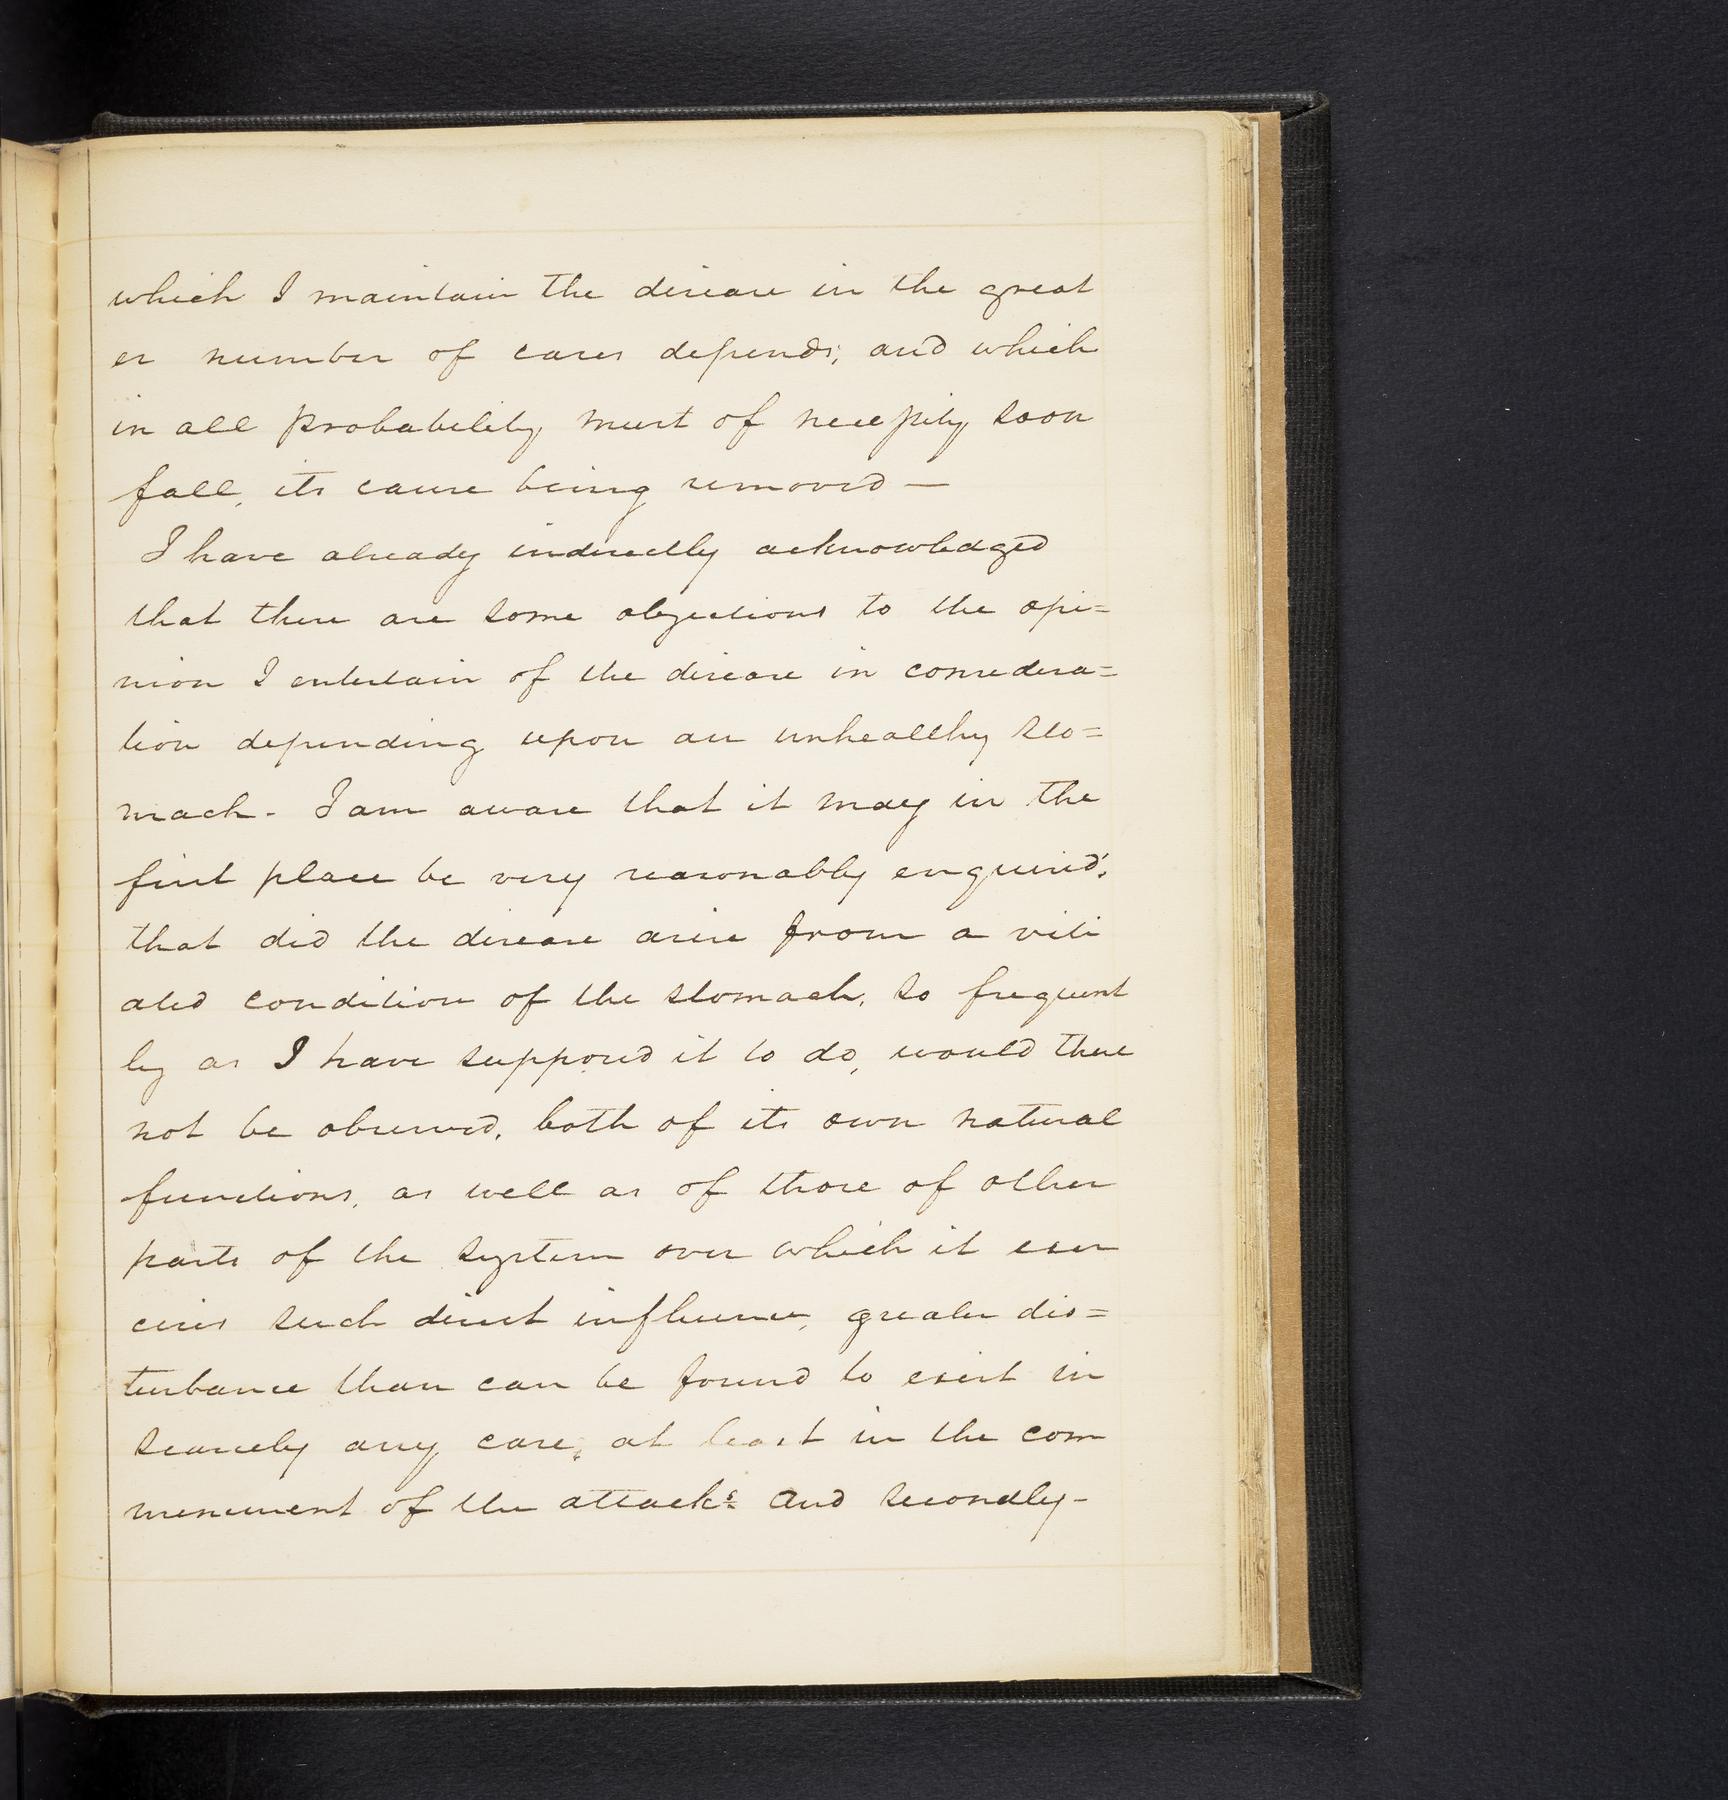 which I maintain the disease in the great
er number of cases depends; and which
in all probability must of necessity soon
fall, its cause being removed —
I have already indirectly acknowledged
that there are some objections to the opi=
nion I entertain of the disease in considera=
tion depending upon an unhealthy sto=
mach - I am aware that it may in the
first place be very reasonably enquired;
that did the disease arise from a viti
ated condition of the stomach, so frequent
ly as I have supposed it to do, would there
not be observed, both of its own natural
functions, as well as of those of other
parts of the system over which it exer
cises such direct influence, greater dis=
turbance than can be found to exist in
scarcely any case; at least in the com
mencement of the attack: And secondly -